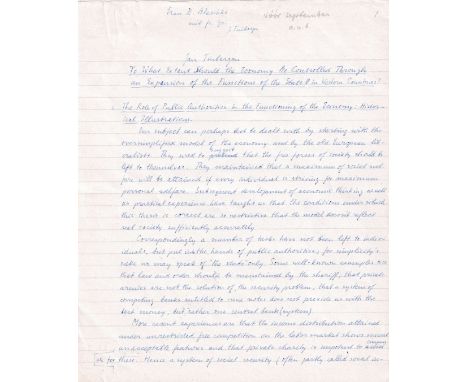 voor september
a.u.b
1
met fr. gr.
J Tinbergen
Jan Tinbergen
To What Extent Should the Economy Be Controlled Through
an Expansion of the Functions of the State in Western Countries?
The Role of Public Authorities in the Functioning of the Economy: Histor-
ical Illustrations.
Our subject can perhaps best be dealt with by starting with the
oversimplified model of the economy used by the old European lib-
eralists. They used to suggest that the free forces of society should be
left to themselves. They maintained that a maximum of social wel-
fare will be attained if every individual is striving for maximum
personal welfare. Subsequent development of economic thinking as well
as practical experience have taught us that the conditions under which
this thesis is correct are so restrictive that the model does not reflect
real society sufficiently accurately.
Correspondingly a number of tasks have not been left to indivi-
duals, but put in the hands of public authorities; for simplicity's
sake we may speak of the state only. Some well-known examples are
that law and order should be maintained by the sheriff, that private
armies are not the solution of the security problem, that a system of
competing banks entitled to issue notes does not provide us with the
best money, but rather one central bank (system).
More recent experiences are that the income distribution attained
under unrestricted free competition on the labor market shows
unacceptable features and that private charity is impotent to
for these. Hence a system of social security (often partly called social in-